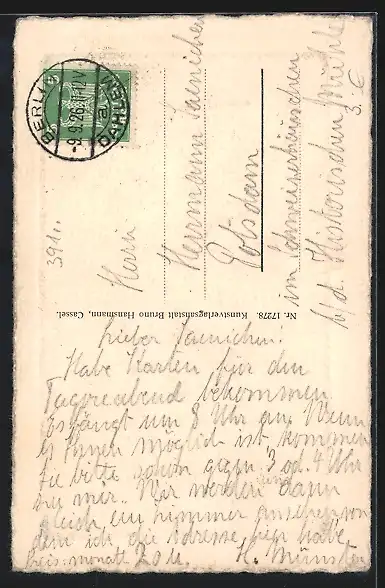 BERLIN
DAHLEM
a
-9.9.26.11-12V
5
391..
Herrn
Herrmann Jaenichen
Potsdam
im Schweizerhäuschen
b/d. Historischen Mühle
3. E
Nr. 17278. Kunstverlagsanstalt Bruno Hansmann, Cassel.
Lieber Jaenichen.
Habe Karten für den
Tagoreabend bekommen
Es fängt um 8 Uhr an. Wenn
es Ihnen möglich ist, kommen
Sie bitte schon gegen 3 od. 4 Uhr
zu mir. Wir werden dann
gleich ein Zimmer ansehen von
dem ich die Adresse hier habe.
Preis: monatl. 20 M. H. Münster